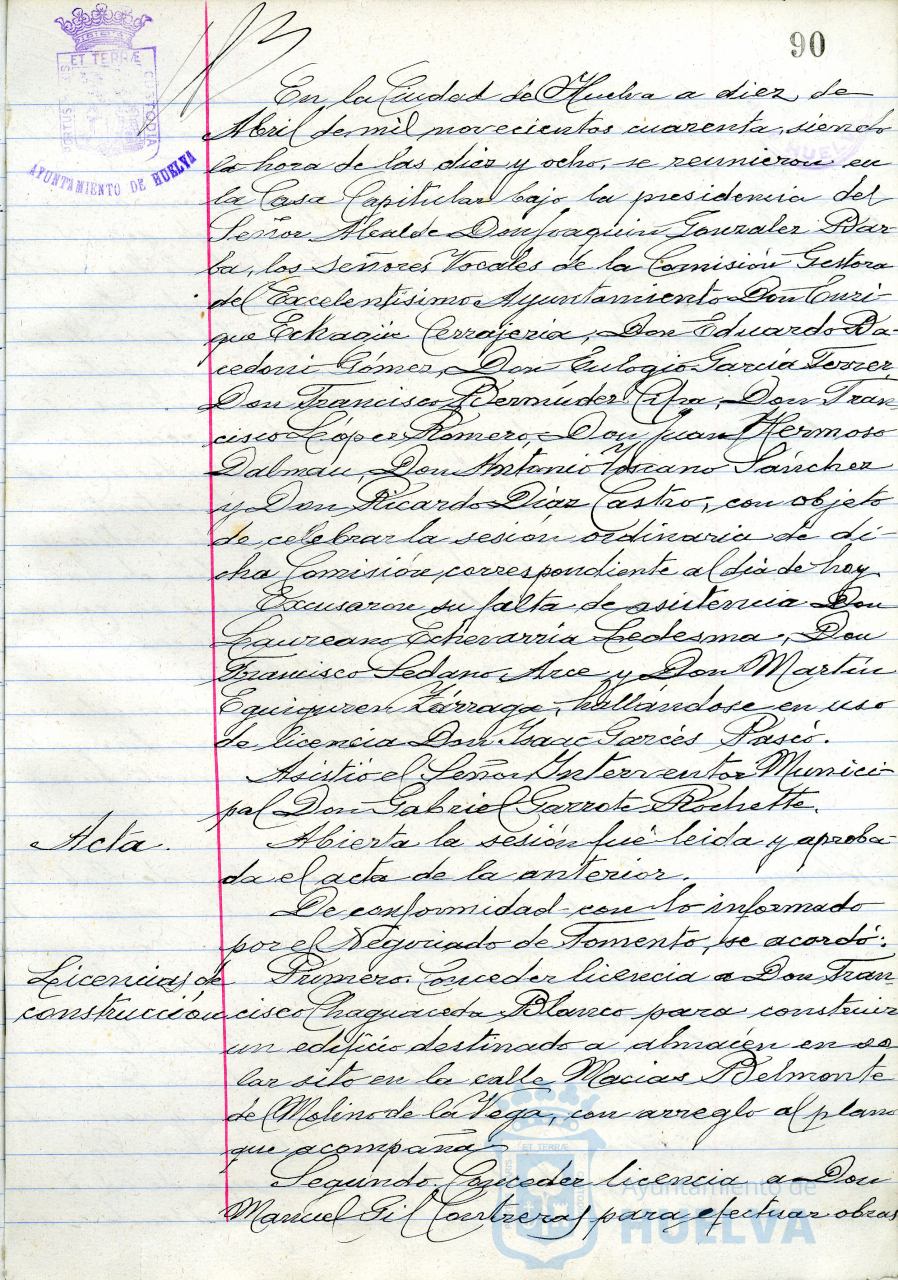 90
ET TERRÆ
PORTUS
CUSTODIA
AYUNTAMIENTO DE HUELVA
En la Ciudad de Huelva a diez de
Abril de mil novecientos cuarenta, siendo
la hora de las diez y ocho, se reunieron en
la Casa Capitular bajo la presidencia del
Señor Alcalde Don Joaquin Gonzalez Bar-
ba, los señores Vocales de la Comisión Gestora
del Excelentisimo Ayuntamiento Don Enri-
que Echagüe Cerrajeria, Don Eduardo Ba-
cedoni Gómez, Don Eulogio García Ferrer,
Don Francisco Bermúdez Cifra, Don Fran-
cisco López Romero, Don Juan Hermoso
Dalmau, Don Antonio Toscano Sánchez
y Don Ricardo Díaz Castro, con objeto
de celebrar la sesión ordinaria de di-
cha Comisión correspondiente al dia de hoy.
Excusaron su falta de asistencia Don
Laureano Echevarria Ledesma, Don
Francisco Sedano Arce y Don Martín
Eguiguren Zárraga, hallándose en uso
de licencia Don Isaac Garcés Pascó.
Asistió el Señor Interventor Munici-
pal Don Gabriel Garrote Rochette.
Acta.
Abierta la sesión fué leida y aproba-
da el acta de la anterior.
De conformidad con lo informado
por el Negociado de Fomento, se acordó:
Licencias de
construcción
Primero. Conceder licencia a Don Fran-
cisco Chaguaceda Blanco para construir
un edificio destinado a almacén en so
lar sito en la calle Macias Belmonte
de Molino de la Vega, con arreglo al plano
que acompaña
Segundo. Conceder licencia a Don
Manuel Gil Contreras para efectuar obras
ET TERRÆ
Ayuntamiento de
HUELVA